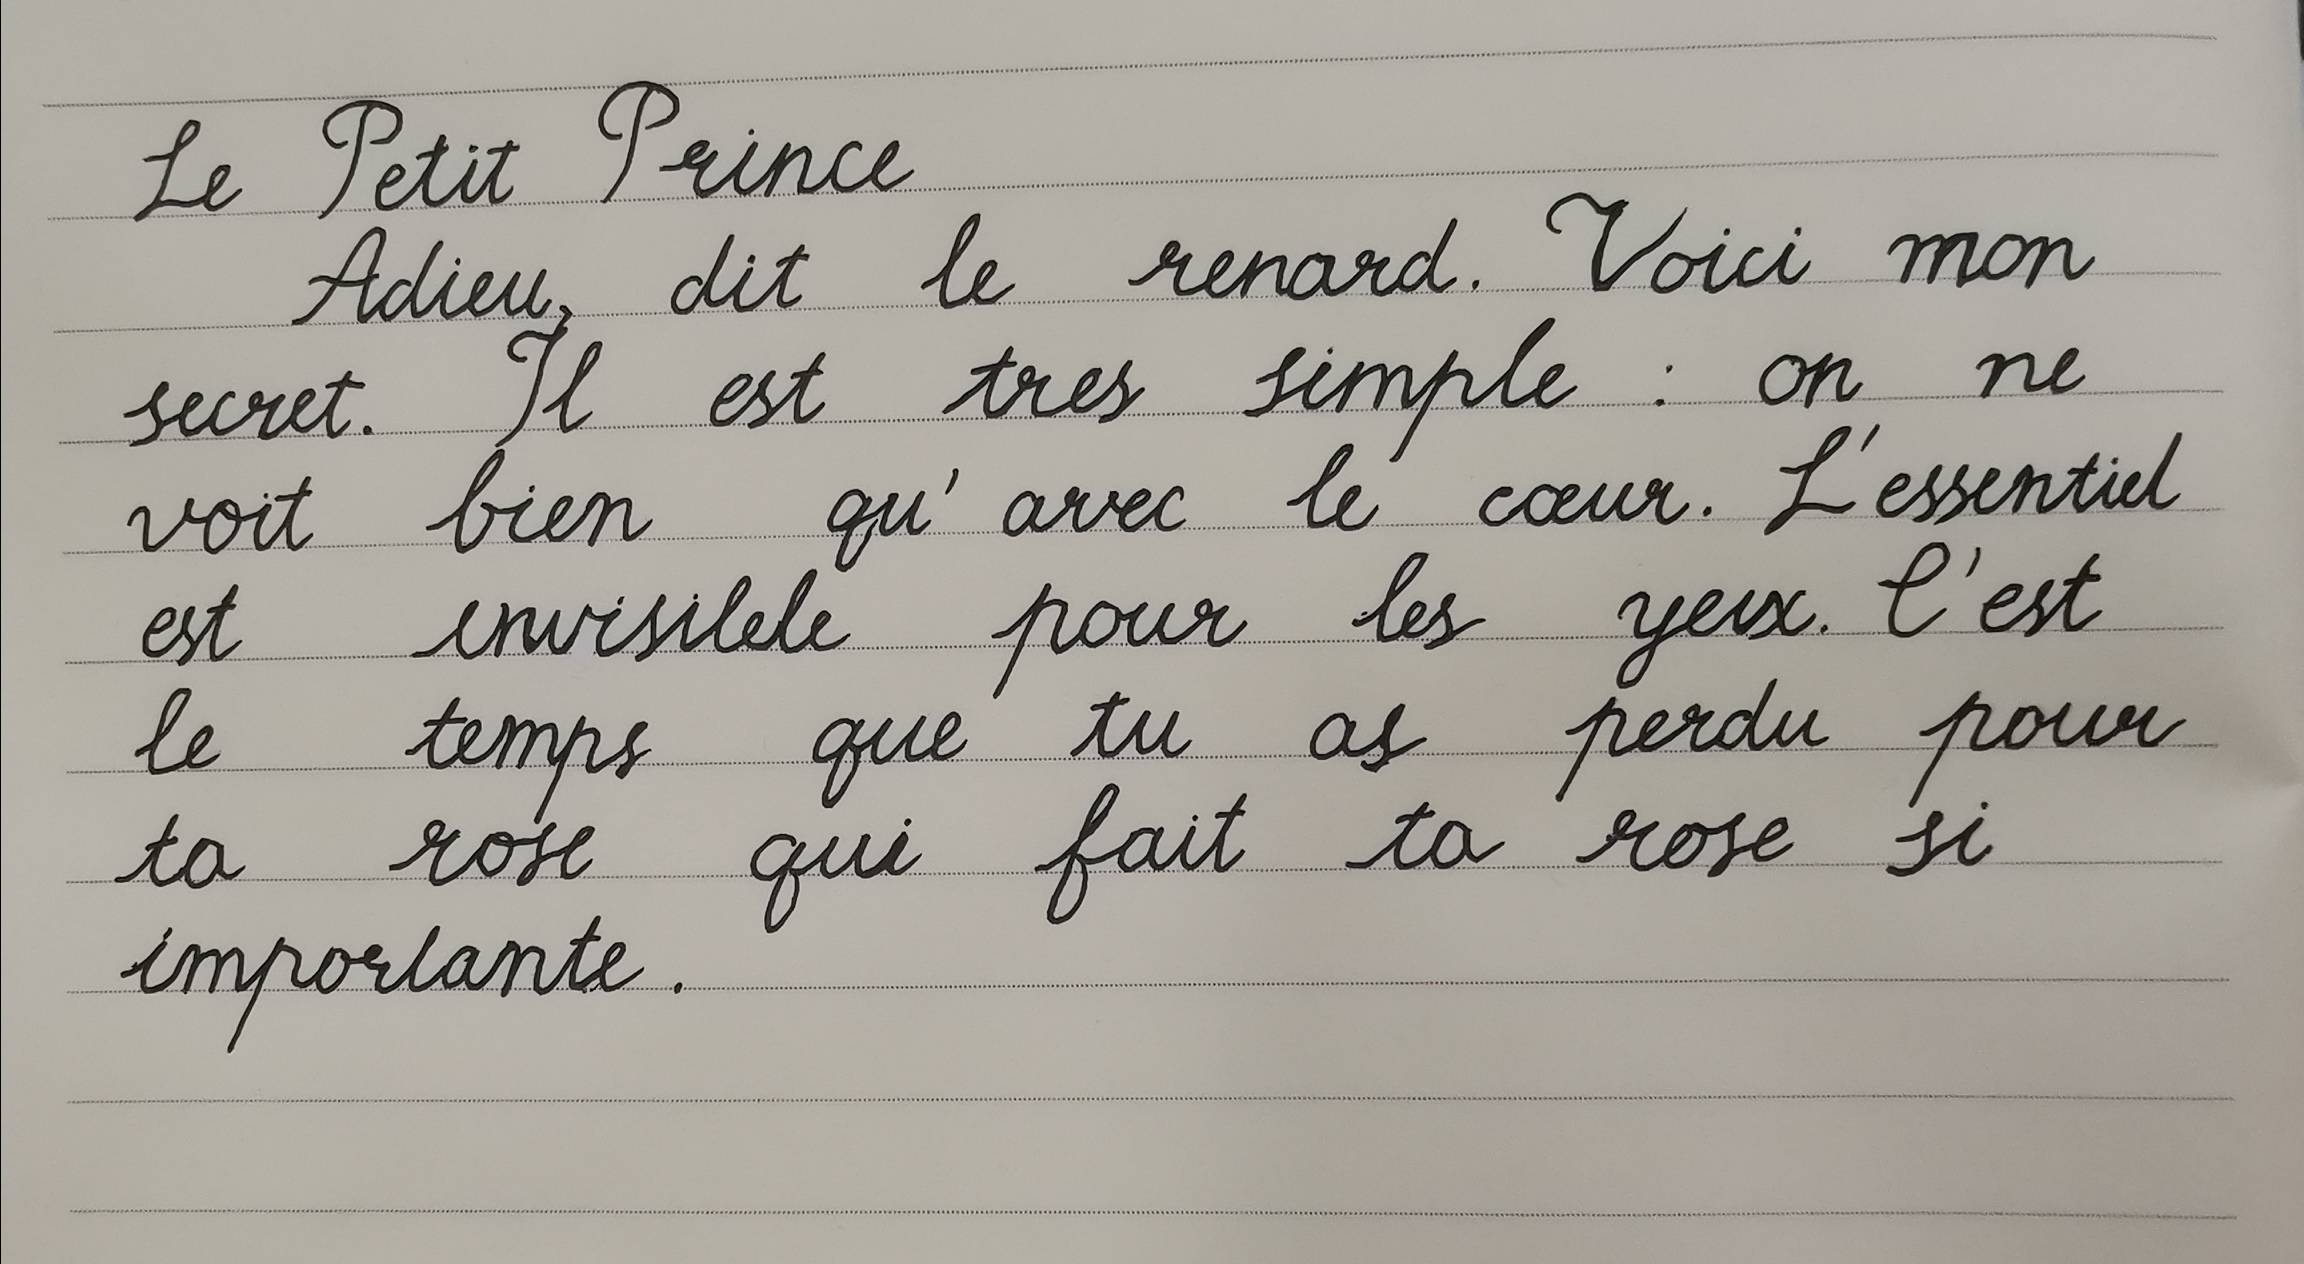 Le Petit Prince
Adieu, dit le renard. Voici mon
secret. Il est tres simple : on ne
voit bien qu'avec le cœur. L'essentiel
est invisible pour les yeux. C'est
le temps que tu as perdu pour
ta rose qui fait ta rose si
importante.